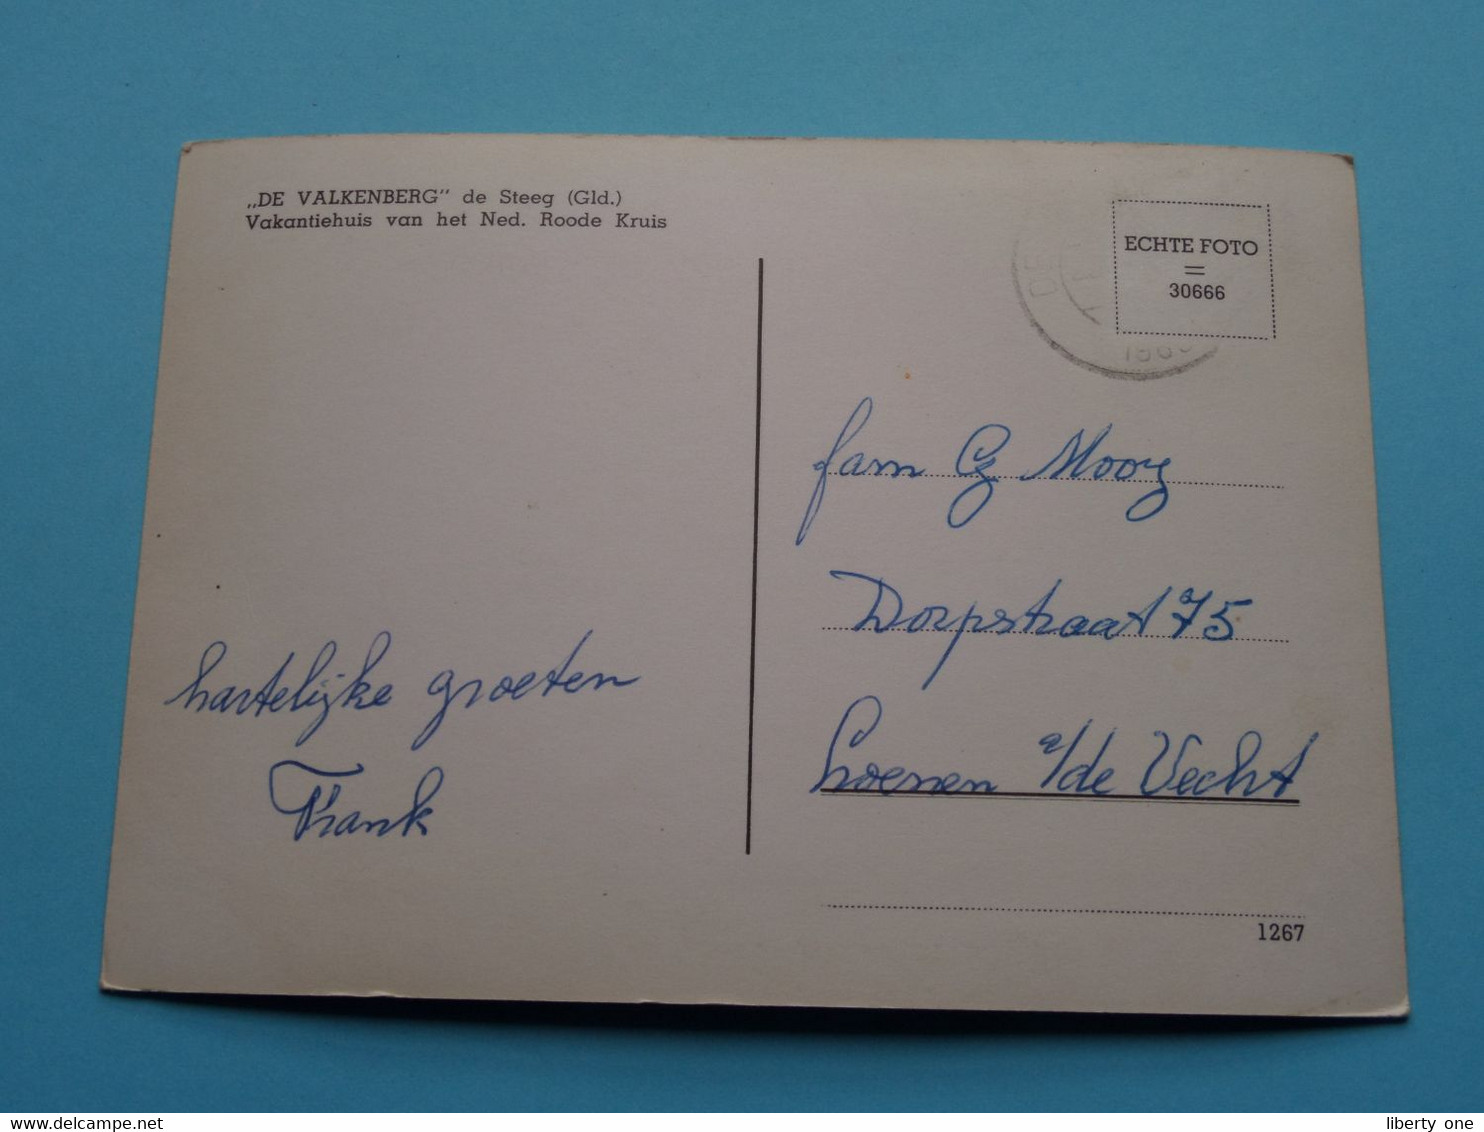 „DE VALKENBERG" de Steeg (Gld.)
Vakantiehuis van het Ned. Roode Kruis
ECHTE FOTO
=
30666
fam G Mooy
Dorpstraat 75
Loenen a/de Vecht
hartelijke groeten
Frank
1267
www.delcampe.net
liberty one